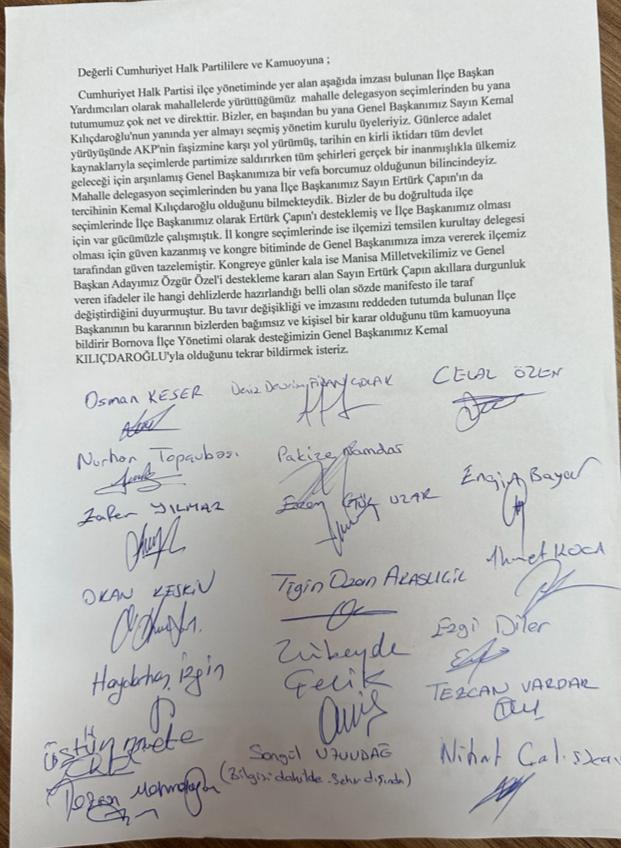 Değerli Cumhuriyet Halk Partililere ve Kamuoyuna ;
Cumhuriyet Halk Partisi ilçe yönetiminde yer alan aşağıda imzası bulunan İlçe Başkan
Yardımcıları olarak mahallelerde yürüttüğümüz mahalle delegasyon seçimlerinden bu yana
tutumumuz çok net ve direkttir. Bizler, en başından bu yana Genel Başkanımız Sayın Kemal
Kılıçdaroğlu'nun yanında yer almayı seçmiş yönetim kurulu üyeleriyiz. Günlerce adalet
yürüyüşünde AKP'nin faşizmine karşı yol yürümüş, tarihin en kirli iktidarı tüm devlet
kaynaklarıyla seçimlerde partimize saldırırken tüm şehirleri gerçek bir inanmışlıkla ülkemiz
geleceği için arşınlamış Genel Başkanımıza bir vefa borcumuz olduğunun bilincindeyiz.
Mahalle delegasyon seçimlerinden bu yana İlçe Başkanımız Sayın Ertürk Çapın'ın da
tercihinin Kemal Kılıçdaroğlu olduğunu bilmekteydik. Bizler de bu doğrultuda ilçe
seçimlerinde İlçe Başkanımız olarak Ertürk Çapın'ı desteklemiş ve İlçe Başkanımız olması
için var gücümüzle çalışmıştık. İl kongre seçimlerinde ise ilçemizi temsilen kurultay delegesi
olması için güven kazanmış ve kongre bitiminde de Genel Başkanımıza imza vererek ilçemiz
tarafından güven tazelemiştir. Kongreye günler kala ise Manisa Milletvekilimiz ve Genel
Başkan Adayımız Özgür Özel'i destekleme kararı alan Sayın Ertürk Çapın akıllara durgunluk
veren ifadeler ile hangi dehlizlerde hazırlandığı belli olan sözde manifesto ile taraf
değiştirdiğini duyurmuştur. Bu tavır değişikliği ve imzasını reddeden tutumda bulunan İlçe
Başkanının bu kararının bizlerden bağımsız ve kişisel bir karar olduğunu tüm kamuoyuna
bildirir Bornova İlçe Yönetimi olarak desteğimizin Genel Başkanımız Kemal
KILIÇDAROĞLU'yla olduğunu tekrar bildirmek isteriz.
Osman KESER Deniz Devrim ÇOLAK CELAL ÖZEN
Nurhan Topçubaşı Pakize Namdar
Zafer YILMAZ UZAR Engin Bayer
OKAN KESKİN Tigin Ozan Ahmet KOCA
Ezgi Diler
Zübeyde
Çelik
Haydarhan İzgin TEZCAN VARDAR
Songül UZUNDAĞ Nihat Çalışkan
(Bilgisi dahilde. Şehir dışında)